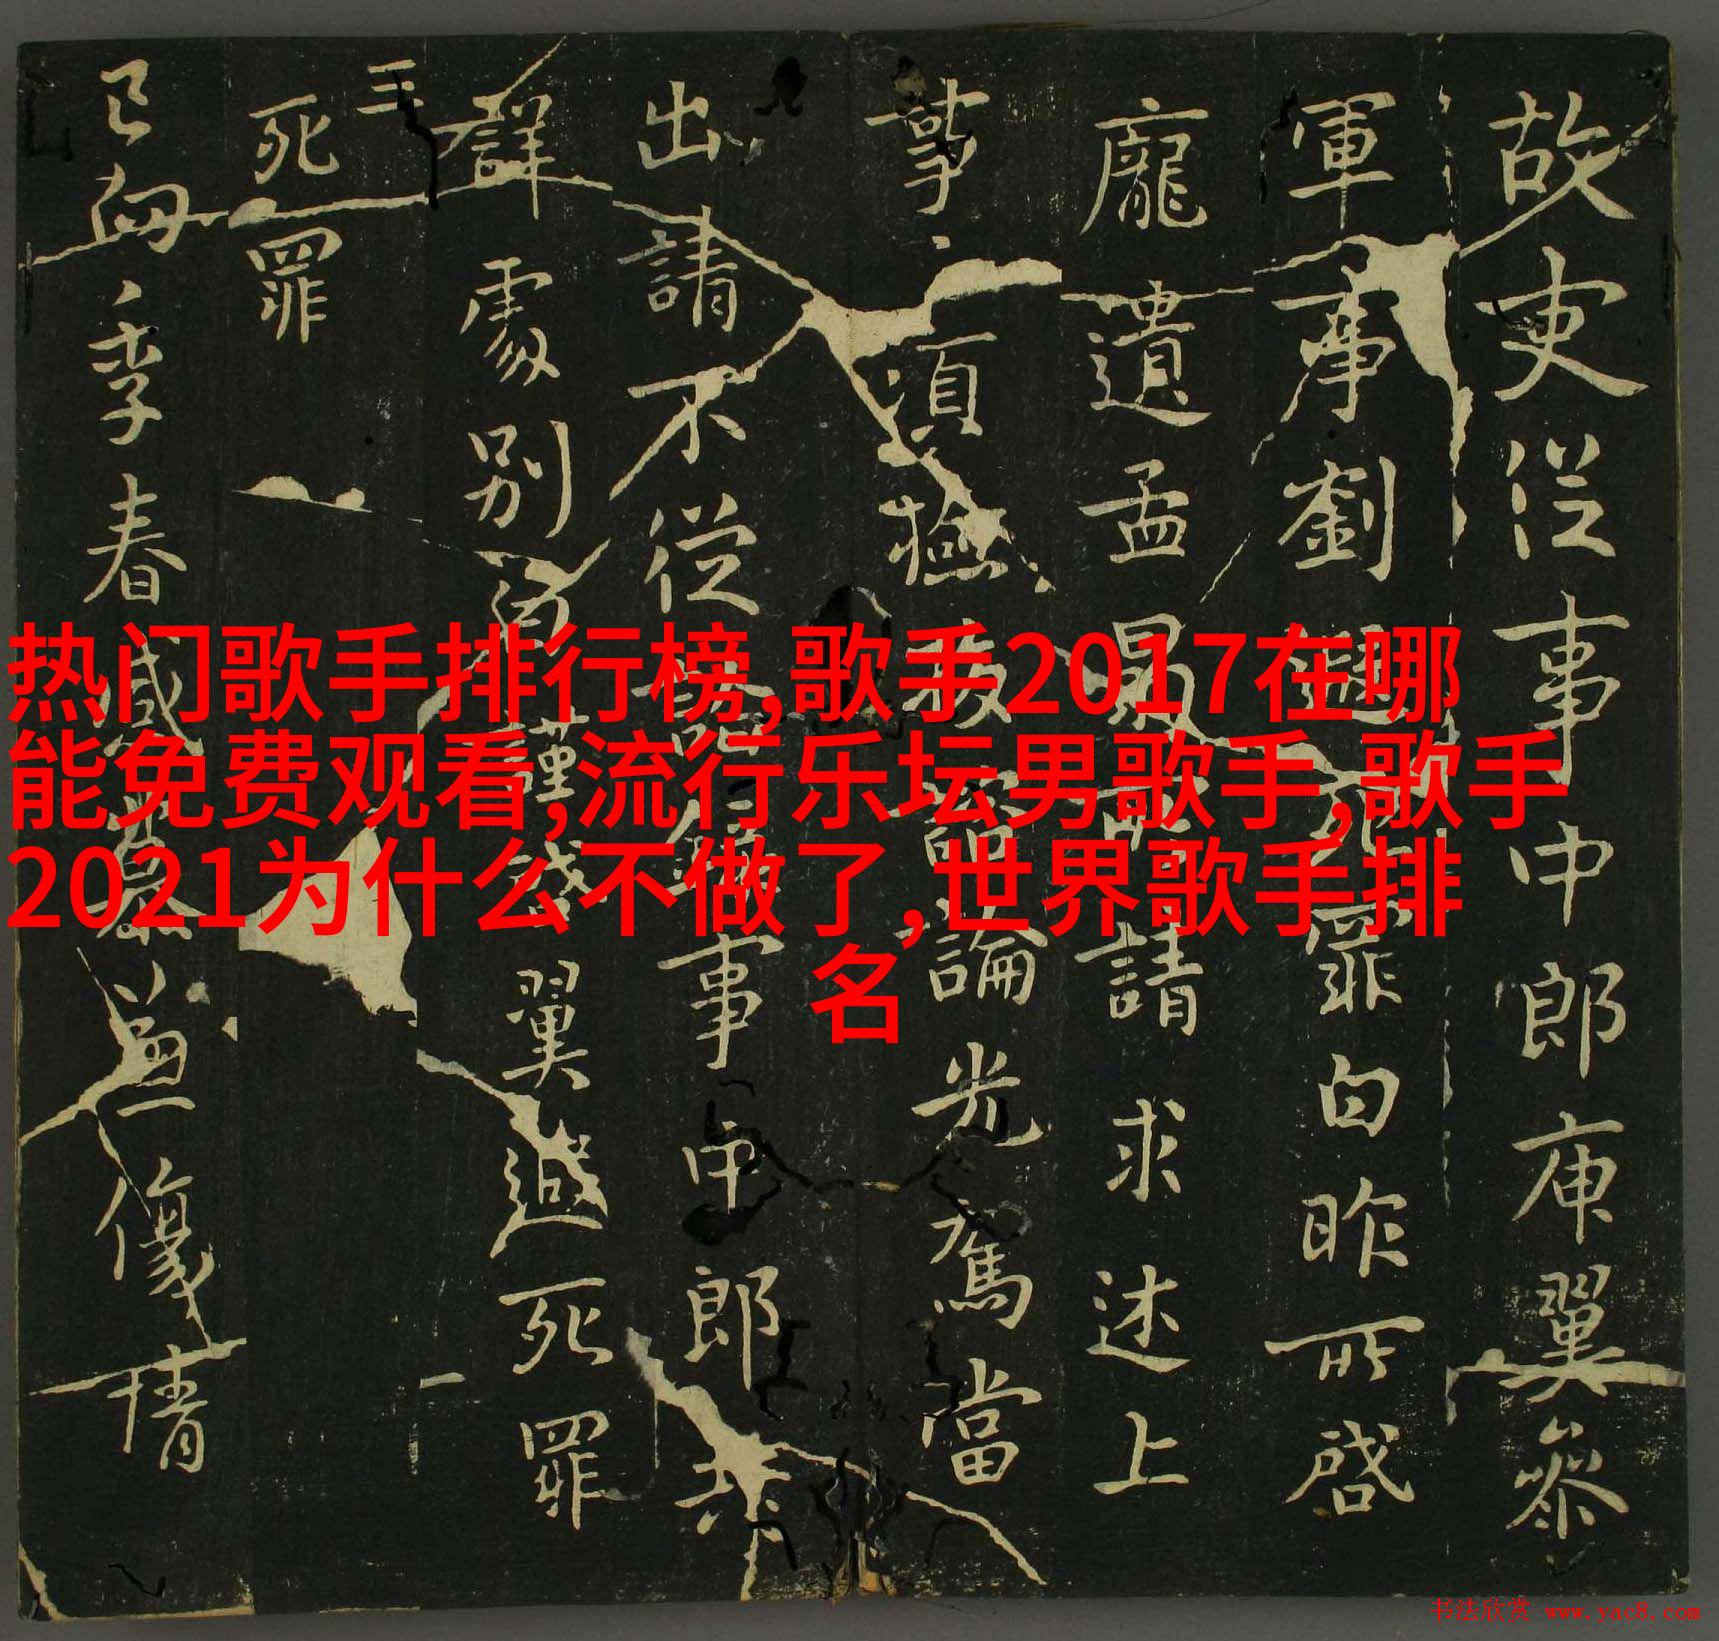 热门歌手排行榜,歌手2017在哪
能免费观看,流行乐坛男歌手,歌手
2021为什么不做了,世界歌手排
名
故吏從事中郎庾翼參
軍事劉遐死罪白昨所啓
龐遺孟最所請求述上
事須檢論光為當
出請不從錄事中郎共
詳處別白謹翼遐死罪
死罪
三
已向季春感慕兼傷情
书法欣赏 www.yac8.com